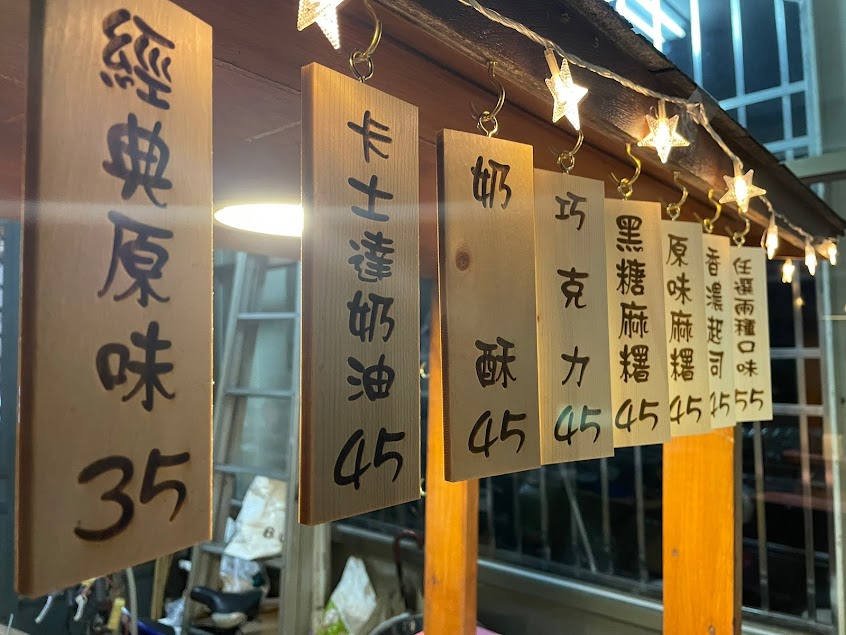 經典原味 35
卡士達奶油 45
奶酥 45
巧克力 45
黑糖麻糬 45
原味麻糬 45
香濃起司 45
任選兩種口味 55